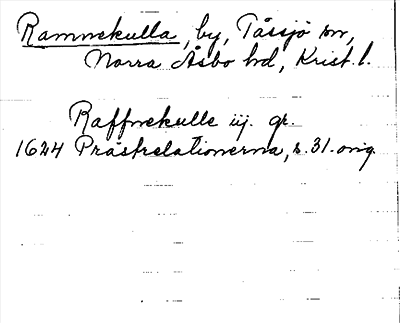 Ramnekulla, by, Tåssjö sn,
Norra Åsbo hd, Krist. l.
Raffnekulle iij. gr.
1624 Prästrelationerna, s. 31. orig.